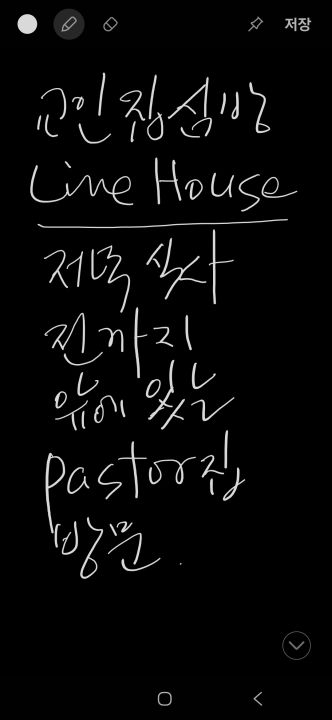 저장
교인집심방
Line House
저녁식사
전까지
앞에 있는
pastor집
방문.